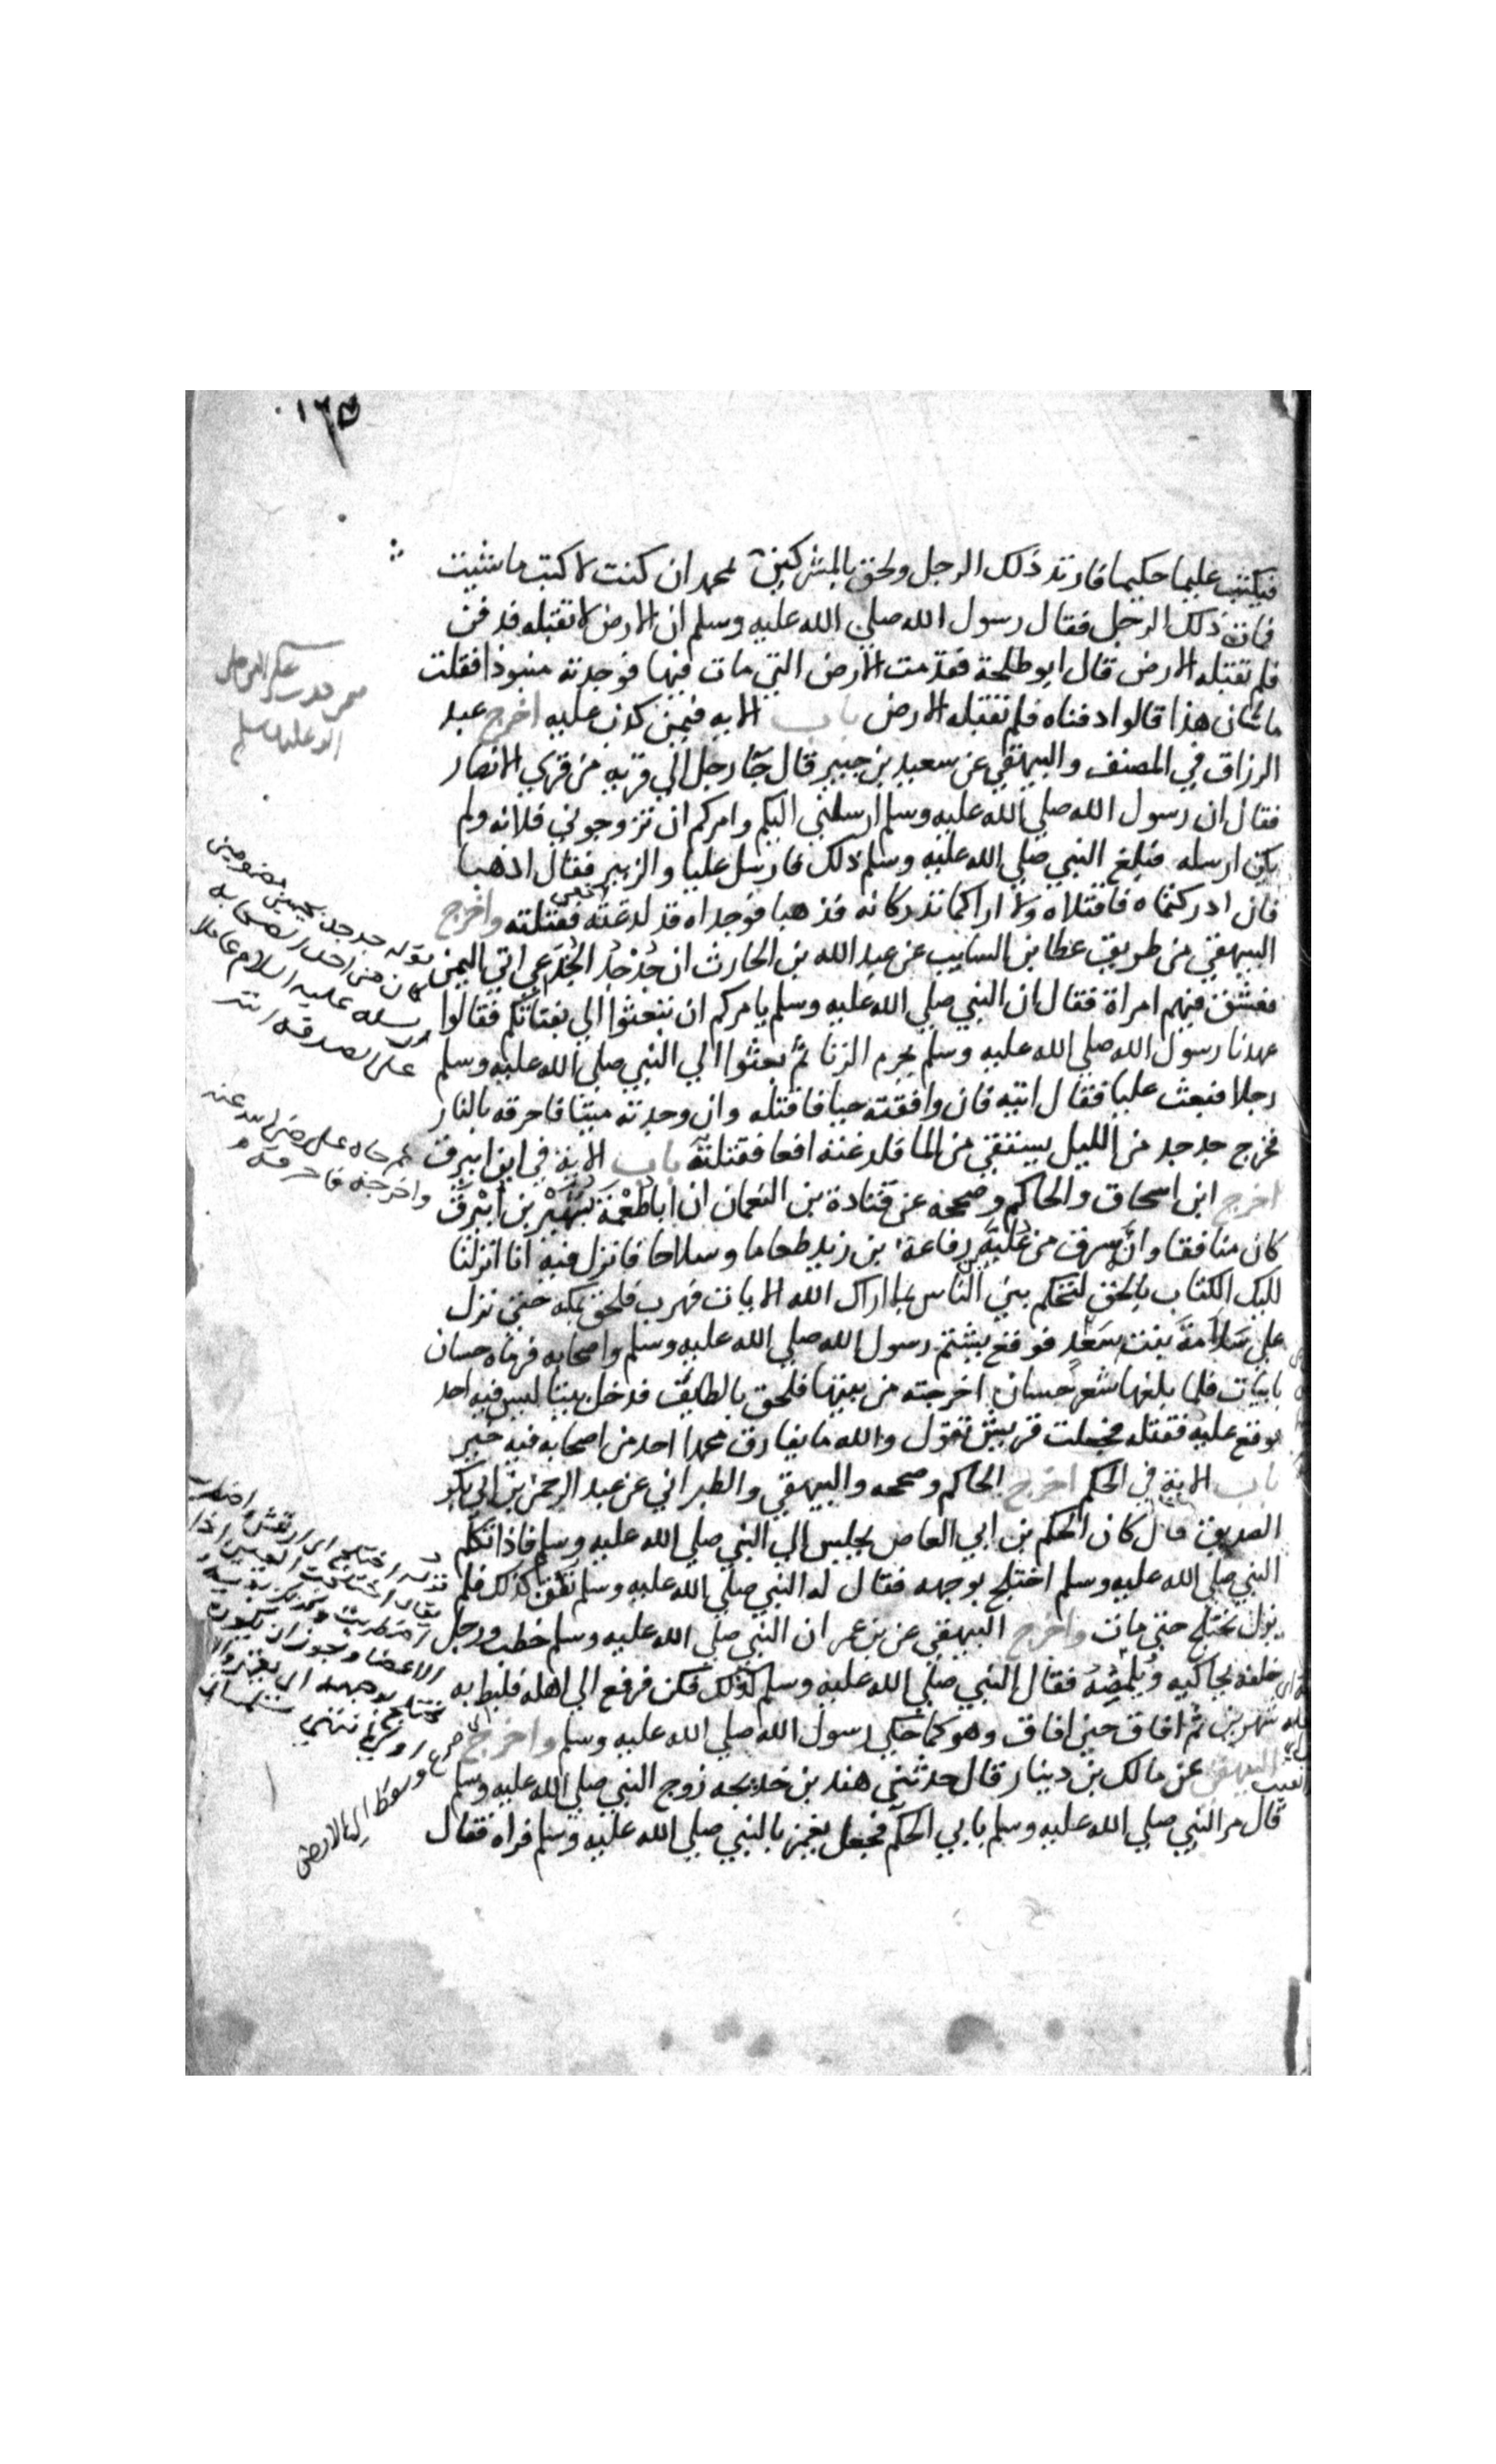 ١٦٥
فيكتب عليما حكيما فارتد ذلك الرجل ولحق بالمشركين لمحمد ان كنت لاكتب ما شيت
فمات ذلك الرجل فقال رسول الله صلي الله عليه وسلم ان الارض لا تقبله فدفن
فلم تقبله الارض قال ابو طلحة فقدمت الارض التي مات فيها فوجدته منبوذا فقلت
ما شان هذا قالوا دفناه فلم تقبله الارض باب الايه فيمن كذب عليه اخرج عبد
الرزاق في المصنف والبيهقي عن سعيد بن جبير قال جآ رجل الي قريه من قري الانصار
فقال ان رسول الله صلي الله عليه وسلم ارسلني اليكم وامركم ان تزوجوني فلانه ولم
يكن ارسله فبلغ النبي صلي الله عليه وسلم ذلك فارسل عليا والزبير فقال اذهبا
فان ادركتماه فاقتلاه ولا اراكما تدركانه فذهبا فوجداه قد لدغته افعي فقتلته واخرج
البيهقي من طريق عطا بن السايب عن عبد الله بن الحارث ان جُدْجُدُ الجُنْدَعي اتي اليمن
فعشق فيهم امراة فقال ان النبي صلي الله عليه وسلم يامركم ان تبعثوا الي بفتاتكم فقالوا
عهدنا رسول الله صلي الله عليه وسلم يحرم الزنا ثم بعثوا الي النبي صلي الله عليه وسلم
رجلا فبعث عليا فقال ايته فان وافقته حيا فاقتله وان وجدته ميتا فاحرقه بالنار
فخرج جدجد من الليل يستقي من الما فلدغته افعا فقتلته باب الاية في ابن ابيرق
اخرج ابن اسحاق والحاكم وصححه عن قتادة بن النعمان ان اباطعْمَة بَشِيْر بن ابَيْرِق
كان منافقا وانه سرق من عُلِّيَّه رفاعة بن زيد طعاما وسلاحا فانزل فيه انا انزلنا
اليك الكتاب بالحق لتحكم بين الناس بما اراك الله الايات فهرب فلحق بمكه حتي نزل
علي سَلَامَةَ بنت سَعْدٍ فوقع يشتم رسول الله صلي الله عليه وسلم واصحابه فرماه حسان
بابيات فلما بلغها شعر حسان اخرجته من بيتها فلحق بالطايف فدخل بيتا ليس فيه احد
فوقع عليه فقتله فجعلت قريش تقول والله ما يفارق محمدا احد من اصحابه فيه خير
باب الاية في الحكم اخرج الحاكم وصححه والبيهقي والطبراني عن عبد الرحمن بن ابي بكر
الصديق قال كان الحكم بن ابي العاص يجلس الي النبي صلي الله عليه وسلم فاذا تكلم
النبي صلي الله عليه وسلم اختلج بوجهه فقال له النبي صلي الله عليه وسلم كن كذلك فلم
يزل يختلج حتي مات واخرج البيهقي عن بن عمر ان النبي صلي الله عليه وسلم خطب ورجل
خلفه يحاكيه ويُلمِضه فقال النبي صلي الله عليه وسلم كذلك فكن فرفع الي اهله فلبط به
شهرين ثم افاق حين افاق وهو كما حكي رسول الله صلي الله عليه وسلم واخرج
البيهقي عن مالك بن دينار قال حدثني هند بن خديجه زوج النبي صلي الله عليه وسلم
قال مر النبي صلي الله عليه وسلم بابي الحكم فجعل يغمز بالنبي صلي الله عليه وسلم فراه فقال
قوله جدجد بجيمين مضمومتين
كان من احد الصحابه
ارسله عليه السلام عاملا
علي الصدقة انتهي
ثم جاه علي رضي الله عنه
واخرجه فاحرقه
قوله اختلج اي ارتعش واضطرب
يقال اختلجت العين اذا
اضطربت
الاعضا ويجوز ان يكون
يختلج بوجهه اي
صرع وسقط الي الارض